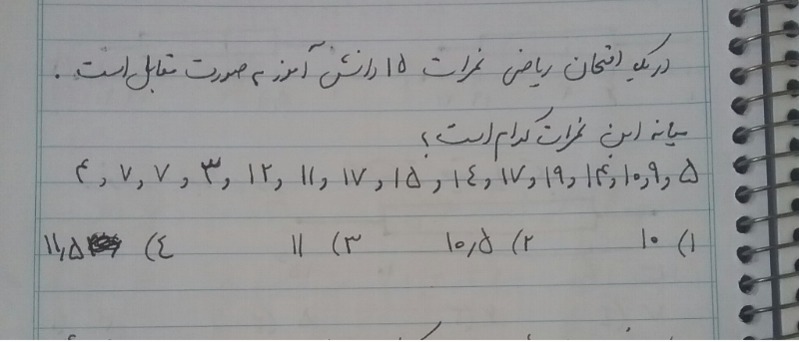 در یک امتحان ریاضی نمرات ۱۵ دانش آموز به صورت مقابل است .
میانه این نمرات کدام است؟
۵ , ۹ , ۱۰ , ۱۴ , ۱۹ , ۱۷ , ۱٤ , ۱۵ , ۱۷ , ۱۱ , ۱۲ , ۳ , ۷ , ۷ , ۴
۱) ۱۰ ۲) ۱۰٫۵ ۳) ۱۱ ٤) ۱۱٫۵